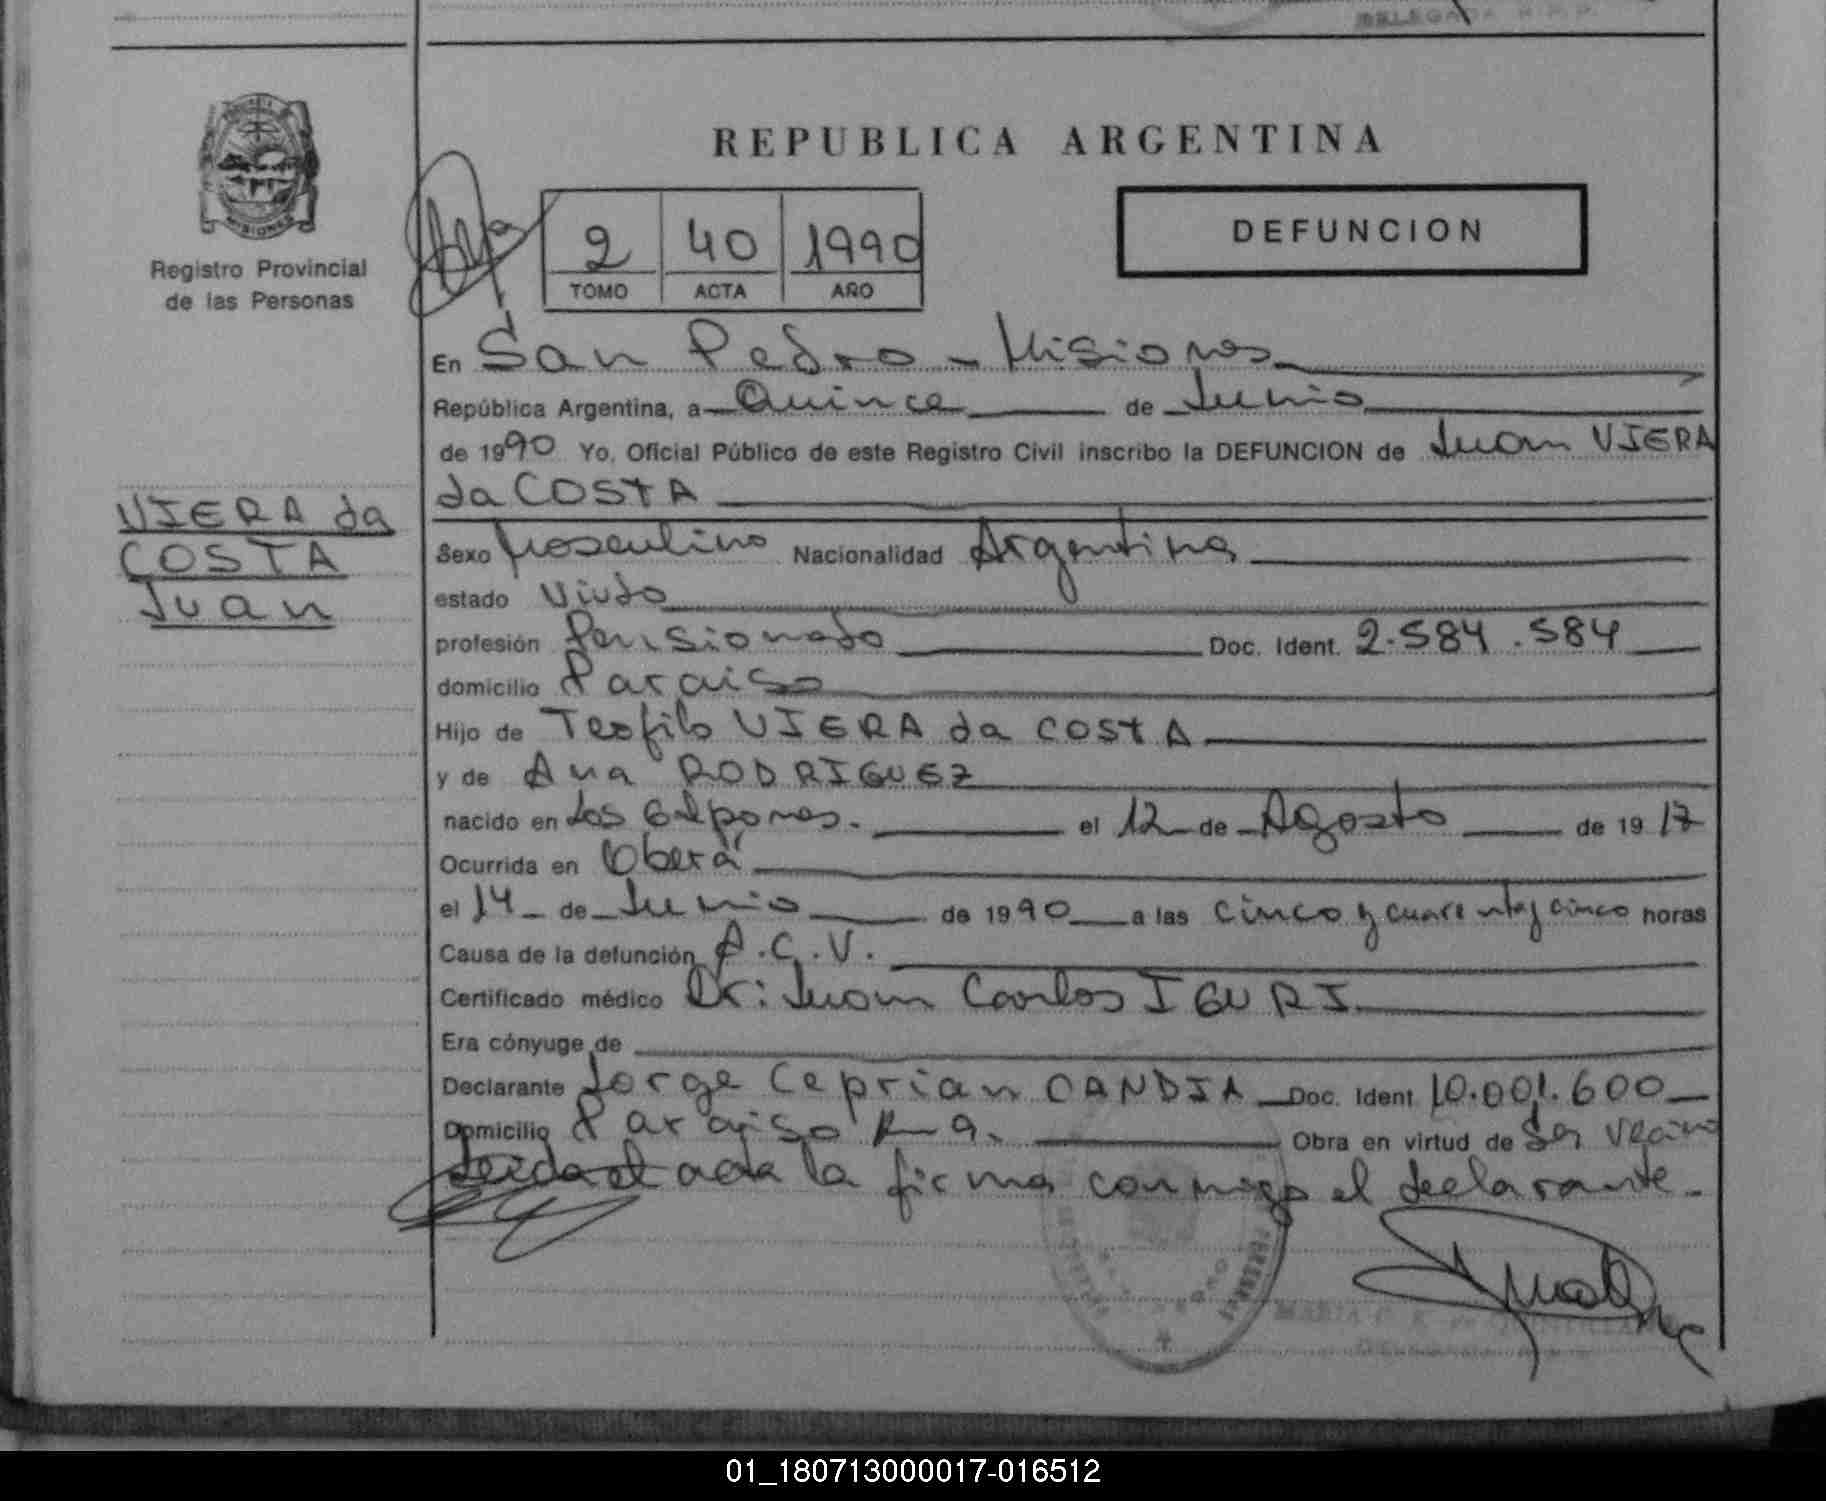 DELEGADA R.P.P.
REPUBLICA ARGENTINA
MISIONES
Registro Provincial
de las Personas
2 40 1990
TOMO ACTA AÑO
DEFUNCION
En San Pedro - Misiones
República Argentina, a Quince de Junio
de 1990 Yo, Oficial Público de este Registro Civil inscribo la DEFUNCION de Juan VIERA
da COSTA
VIERA da
COSTA
Juan
Sexo Masculino Nacionalidad Argentina
estado Viudo
profesión Pensionado Doc. Ident. 2.584.584
domicilio Paraiso
Hijo de Teofilo VIERA da COSTA
y de Ana RODRIGUEZ
nacido en Los Galpones. el 12 de Agosto de 1917
Ocurrida en Oberá
el 14 de Junio de 1990 a las cinco y cuarenta y cinco horas
Causa de la defunción A.C.V.
Certificado médico Dr: Juan Carlos IGURI
Era cónyuge de
Declarante Jorge Ceprian CANDIA Doc. Ident 10.001.600
Domicilio Paraiso K-9. Obra en virtud de Ser vecino
Leida el acta la firma conmigo el declarante.
SAN PEDRO
MARIA
01_180713000017-016512